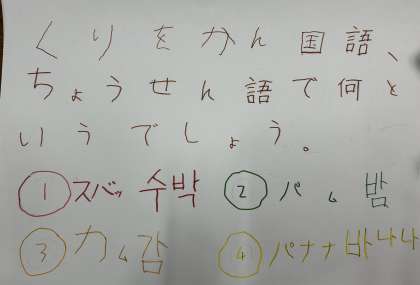 くりをかん国語、
ちょうせん語で何と
いうでしょう。
① スバッ 수박 ② パム 밤
③ カム 감 ④ バナナ 바나나